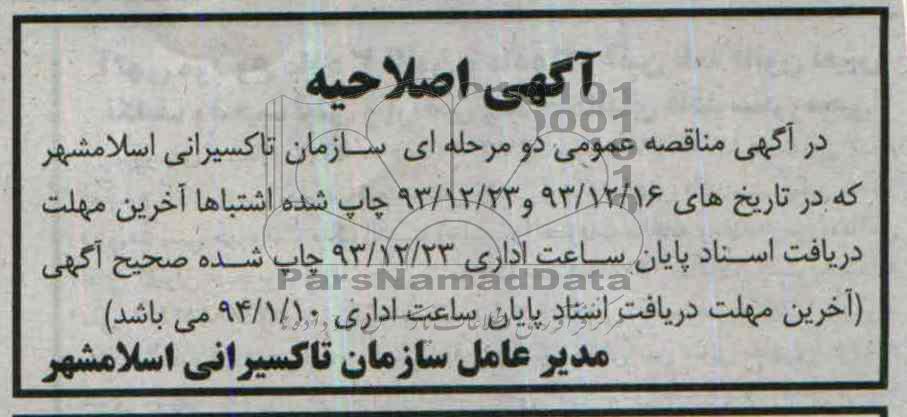 آگهی اصلاحیه
در آگهی مناقصه عمومی دو مرحله ای سازمان تاکسیرانی اسلامشهر
که در تاریخ های ۹۳/۱۲/۱۶ و ۹۳/۱۲/۲۳ چاپ شده اشتباها آخرین مهلت
دریافت اسناد پایان ساعت اداری ۹۳/۱۲/۲۳ چاپ شده صحیح آگهی
ParsNamadData
(آخرین مهلت دریافت اسناد پایان ساعت اداری ۹۴/۱/۱۰ می باشد)
مدیر عامل سازمان تاکسیرانی اسلامشهر